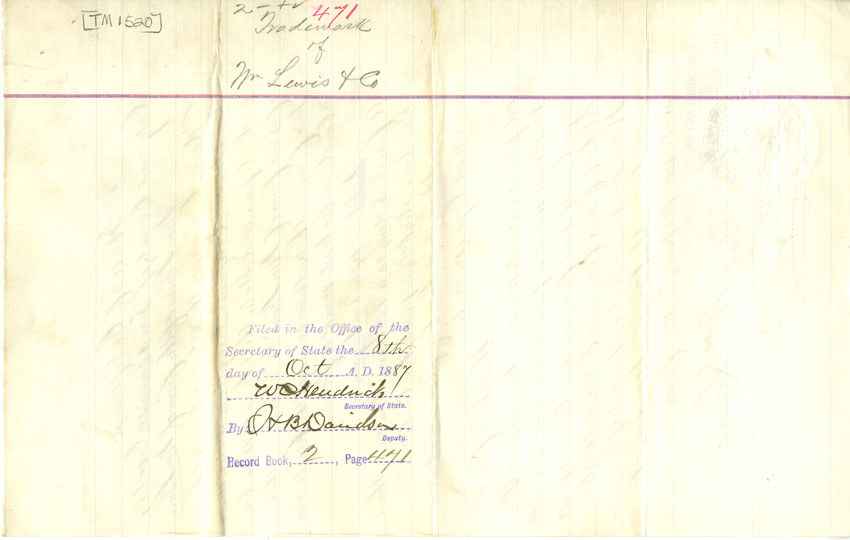 [TM 1520]
471
Trademark
of
Wm Lewis & Co
Filed in the Office of the
Secretary of State the 8th
day of Oct A. D. 1887
W C Hendricks
Secretary of State.
By H B Davidson
Deputy.
Record Book, 2, Page 471